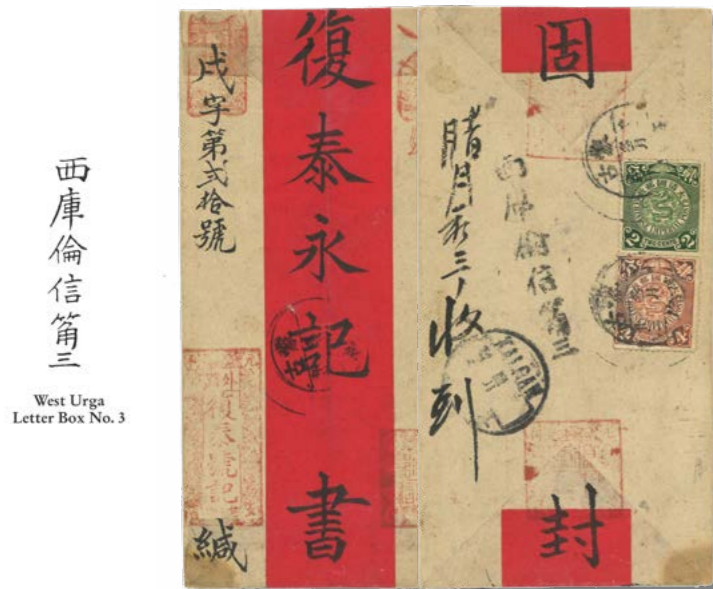 西庫倫信筩三
West Urga
Letter Box No. 3
戌字第弍拾號
緘
復泰永記
書
固
封
臘月初三收到
西庫倫信筩三
KALGAN
2
2